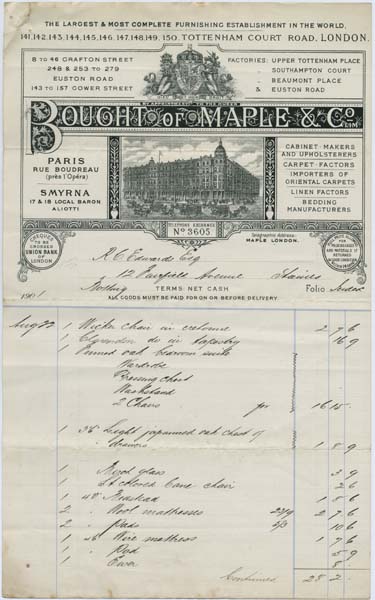 THE LARGEST & MOST COMPLETE FURNISHING ESTABLISHMENT IN THE WORLD,
141, 142, 143, 144, 145, 146, 147, 148, 149, 150, TOTTENHAM COURT ROAD, LONDON.
8 TO 46 GRAFTON STREET
248 & 253 TO 279
EUSTON ROAD
143 TO 157 GOWER STREET
FACTORIES: UPPER TOTTENHAM PLACE
SOUTHAMPTON COURT
BEAUMONT PLACE
& EUSTON ROAD
BOUGHT OF MAPLE & CO. LIM.
PARIS
RUE BOUDREAU
(près l'Opéra)
SMYRNA
17 & 18 LOCAL BARON
ALIOTTI
CABINET MAKERS
AND UPHOLSTERERS
CARPET FACTORS
IMPORTERS OF
ORIENTAL CARPETS
LINEN FACTORS
BEDDING
MANUFACTURERS
TELEPHONE EXCHANGE
No 3605
Telegraphic Address:
MAPLE LONDON.
CHEQUES
TO BE
CROSSED
UNION BANK
OF
LONDON
R C Edwards Esq
12 Avenue Staines
1901
TERMS: NET CASH
Folio
ALL GOODS MUST BE PAID FOR ON OR BEFORE DELIVERY
Aug 1 Wicker chair in cretonne 2 7 6
1 Clarendon do in tapestry 16 9
1 oak bedroom suite
Wardrobe
Dressing chest
Washstand
2 Chairs for 16 15
1 36 Light japanned oak chest of
drawers 1 8 9
1 glass 3 9
1 Cane chair 2 6
1 48 1 8 6
2 " Wool mattresses 23/9 2 7 6
2 " Pads 5/3 10 6
1 36 Wire mattress 1 7 6
1 " Pad 5 9
1 Ewer 8
Continued 28 2